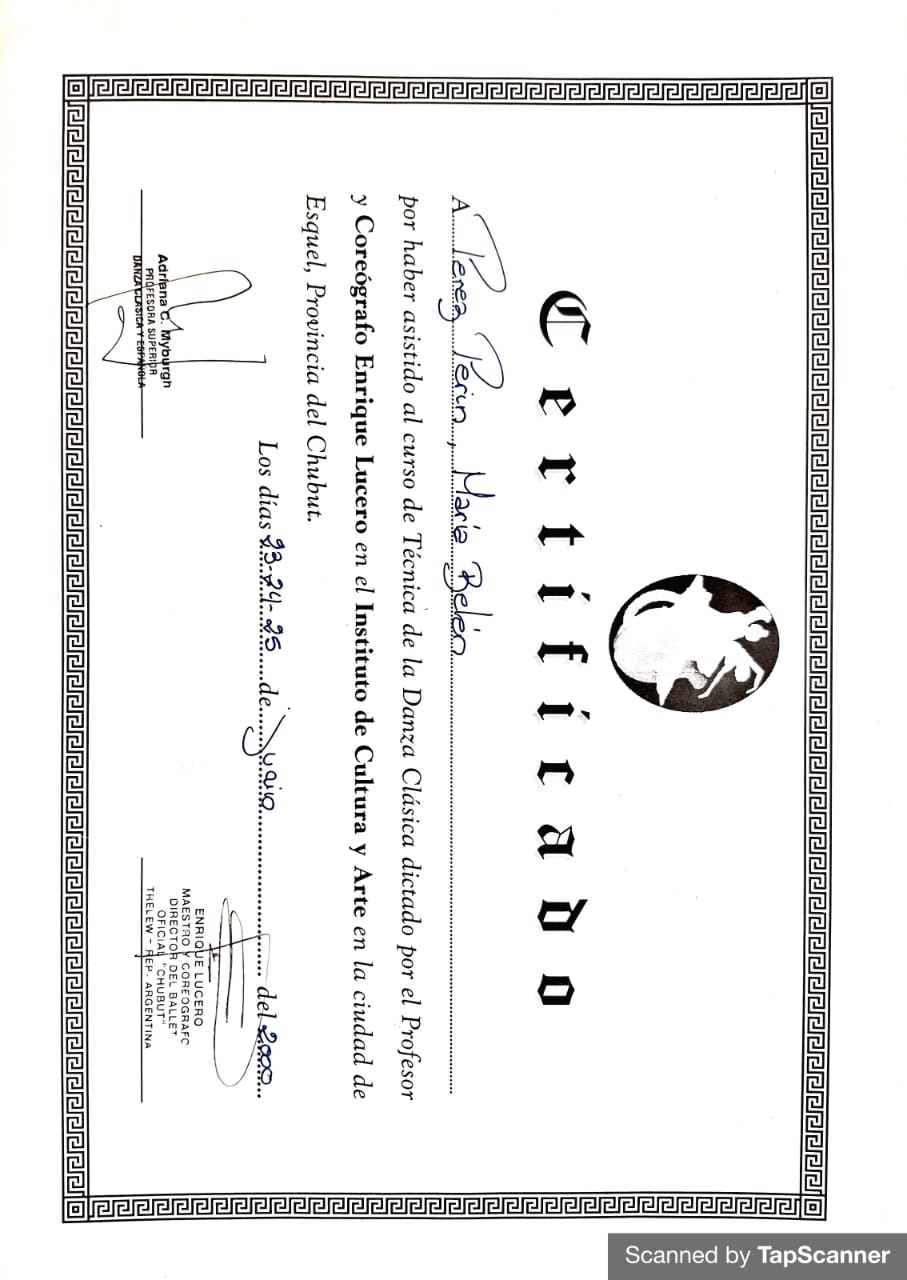 Certificado
A Perez Perin, María Belén
por haber asistido al curso de Técnica de la Danza Clásica dictado por el Profesor
y Coreógrafo Enrique Lucero en el Instituto de Cultura y Arte en la ciudad de
Esquel, Provincia del Chubut.
Los días 23-24-25 de Junio del 2000
Adriana C. Myburgh
PROFESORA SUPERIOR
DANZA CLASICA Y ESPAÑOLA
ENRIQUE LUCERO
MAESTRO Y COREOGRAFO
DIRECTOR DEL BALLET
OFICIAL "CHUBUT"
TRELEW - REP. ARGENTINA
Scanned by TapScanner